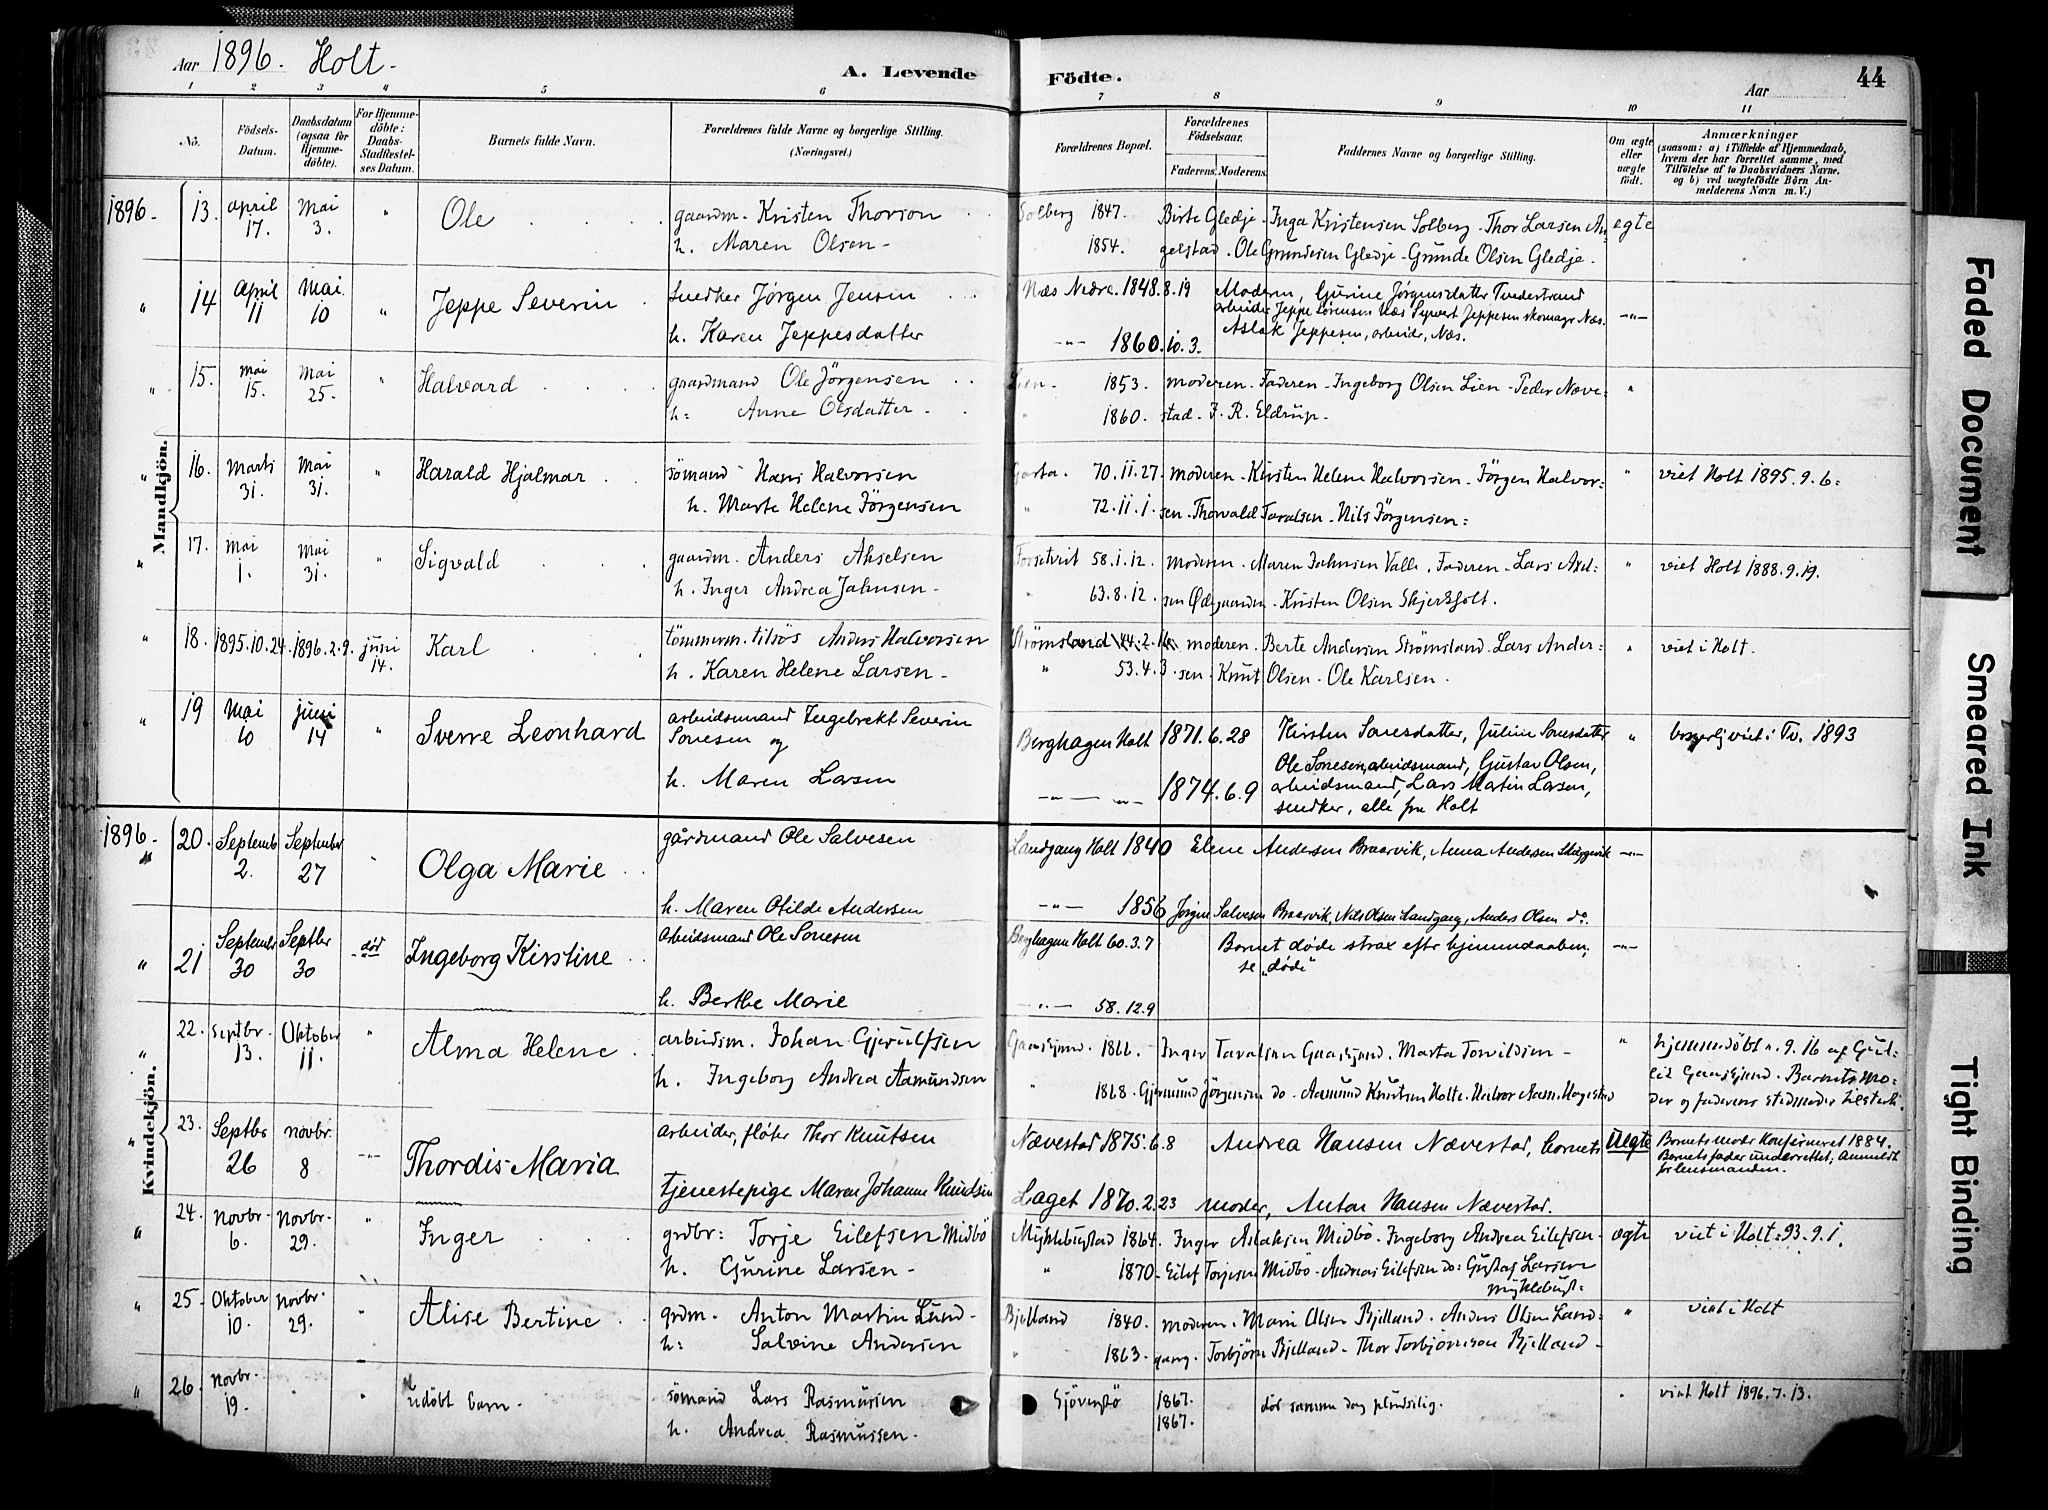 Aar 1896. Holt.
A. Levende Födte.
Aar
44
1 2 3 4 5 6 7 8 9 10 11
No.
Födsels-Datum.
Daabsdatum (ogsaa for Hjemmedöbte).
For Hjemmedöbte: Daabs-Stadfestelses Datum.
Barnets fulde Navn.
Forældrenes fulde Navne og borgerlige Stilling. (Næringsvei.)
Forældrenes Bopæl.
Forældrenes Födselsaar.
Faderens. Moderens.
Faddernes Navne og borgerlige Stilling.
Om ægte eller uægte födt.
Anmærkninger
(saasom: a) i Tilfælde af Hjemmedaab, hvem der har forrettet samme, med Tilföielse af to Daabsvidners Navne, og b) ved uægtefödte Börn Anmelderens Navn m. V.)
Mandkjön.
1896. 13. April 17. Mai 3. " Ole gaardm. Kristen Thorson Solberg 1847. Birte Gledje. Inga Kristensen Solberg. Thor Larsen An- egte
h. Maren Olsen. " 1854. gelstad. Ole Grundesen Gledje. Grunde Olsen Gledje.
" 14 April 11 Mai 10 " Jeppe Severin Snedker Jörgen Jensen Næs Nedre. 1848.8.19 Moderen, Gurine Jørgensdatter Tvedestrand
arbeider Jeppe Sörensen Næs Sywert Jeppesen skomager Næs. -"-
h. Karen Jeppesdatter -"- 1860.10.3. Aslak Jeppesen, arbeider, Næs.
" 15. Mai 15. Mai 25. " Halvard gaardmand Ole Jörgensen Lien. 1853. moderen. Faderen. Ingeborg Olsen Lien. Peder Næve- "
h: Anne Olsdatter. " 1860. stad. J. R. Eldrup.
" 16. Marts 31. Mai 31. " Harald Hjalmar sömand Hans Halvorsen Garta. 70.11.27. moderen. Kirsten Helene Halvorsen. Jörgen Halvor: " viet Holt 1895.9.6.
h. Marte Helene Jörgensen " 72.11.1. sen. Thorvald Taralsen. Nils Jörgensen.
" 17. Mai 1. Mai 31. " Sigvald gaardm. Anders Akselsen 58.1.12. moderen. Maren Jahnsen Valle. Faderen. Lars Axel: " viet Holt 1888.9.19.
h. Inger Andrea Jahnsen. " 63.8.12. sen Ødegaarden. Kristen Olsen Skjerkholt.
" 18. 1895.10.24. 1896.2.9. juni 14. Karl tömmerm. tilsös Anders Halvorsen Strömsland 44.2.16. moderen. Berte Andersen Strömsland. Lars Ander: " viet i Holt.
h. Karen Helene Larsen. " 53.4.3. sen. Knut Olsen. Ole Karlsen.
" 19 Mai 10 juni 14 " Sverre Leonhard arbeidsmand Ingebrekt Severin
Sonesen og Berghagen Holt 1871.6.28 Kirsten Sonesdatter, Juline Sonesdatter " borgerlj viet i Tv. 1893
Ole Sonesen, arbeidsmand, Gustav Olsen,
h. Maren Larsen -"- -"- 1874.6.9 arbeidsmand, Lars Martin Larsen,
snedker, alle fra Holt
Kvindekjön.
1896. 20. Septemb 2. September 27 " Olga Marie gårdmand Ole Salvesen Landgang Holt 1840 Elene Andersen Braarvik, Anna Andersen -"-
h. Maren Otilde Andersen -"- 1856 Jørgine Salvesen Braarvik, Nils Olsen Landgang, Anders Olsen do.
" 21 Septembr 30 Septbr 30 død Ingeborg Kirstine Arbeidsmand Ole Sonesen Berghagen Holt 60.3.7 Barnet døde strax efter hjemmedaaben, -"-
se "døde"
h. Berthe Marie -"- 58.12.9
" 22. Septbr. 13. Oktober 11. " Alma Helene arbeidsm. Johan Gjerulfsen 1866. Inger Taralsen. Marta Torvildsen. " hjemmedöbt 9.16 af
h. Ingeborg Andrea Aamundsen " 1868. Gjermund Jörgensen do. Aamund Knutsen Holte. Halvor Aam. Barnets mo:
der og faderens stedmoder tilstede.
" 23. Septbr 26 novbr. 8 -"- Thordis Maria arbeider, fløter Thor Knutsen Nævestad 1875.6.8 Andrea Hansen Nævestad, barnets Uegte Barnets moder Konfirmeret 1884.
Barnets fader underrettet; Anmeldt for lensmanden.
tjenestepige Maren Johanne Knudsen Laget 1870.2.23 moder, Anton Hansen Nævestad.
" 24. Novbr. 6. Novbr. 29. " Inger grdbr: Torje Eilefsen Midbö Myklebustad 1864. Inger Aslaksen Midbö. Ingeborg Andrea Eilefsen. ægte viet i Holt: 93.9.1.
h. Gurine Larsen. " 1870. Eilef Torjesen Midbö. Andreas Eilefsen do: Gustaf Larsen
Myklebust.
" 25. Oktober 10. Novbr. 29. " Alise Bertine grdm. Anton Martin Lund. Bjelland 1840. moderen. Mari Olsen Bjelland. Anders Olsen Land: " viet i Holt
h: Salvine Andersen " 1863. gang. Torbjörn Bjelland. Thor Torbjörnson Bjelland.
" 26. Novbr. 19. " " udöbt barn. sömand Lars Rasmusen 1867. död samme dag pludselig. " viet Holt 1896.7.13.
h. Andrea Rasmussen. 1867.
Faded Document
Smeared Ink
Tight Binding